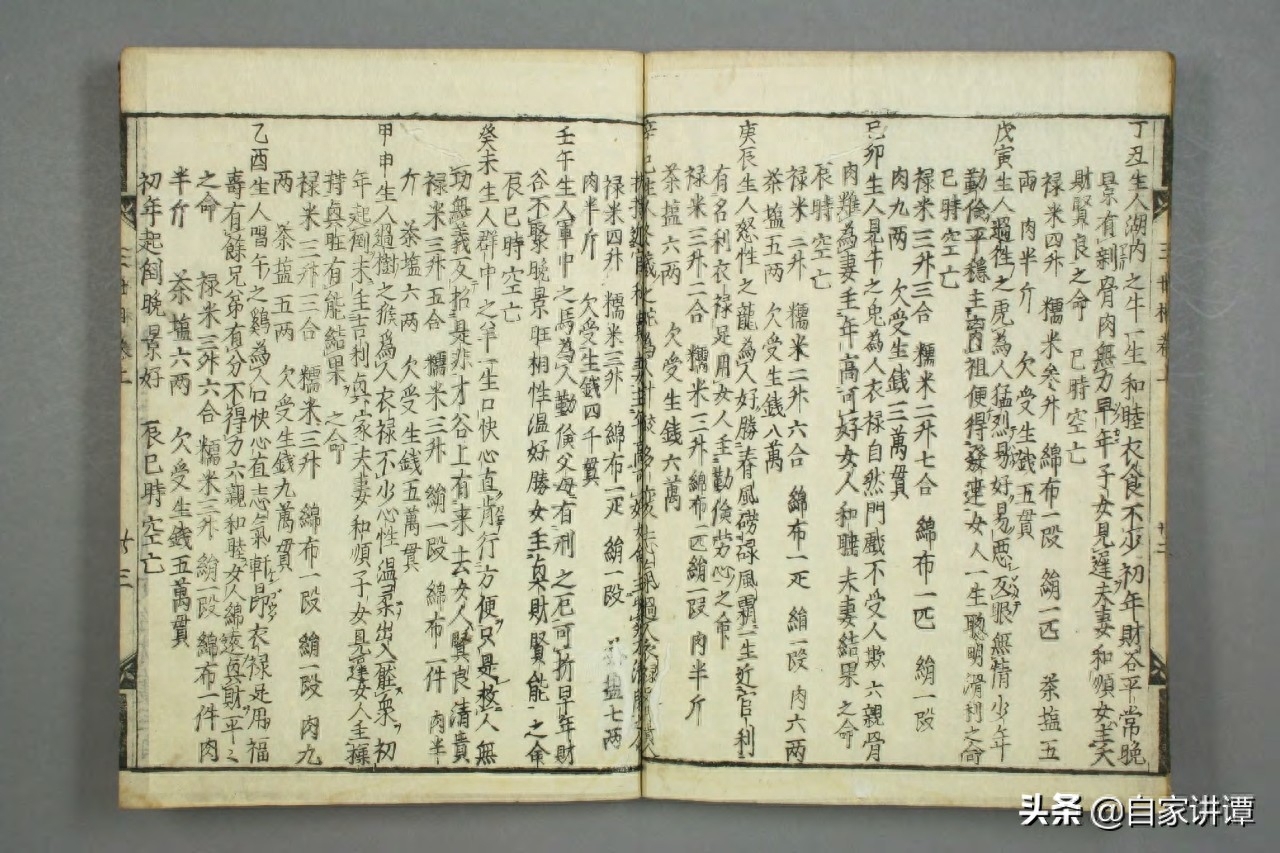 丁丑生人湖内之牛一生和睦衣食不少初年財谷平常晚
景有剝骨肉無力早年子女見遲夫妻和順女主大
財賢良之命 巳時空亡
禄米四升 糯米叁升 綿布一段 絹一匹 茶塩五
兩 肉半斤 欠受生錢五貫
戊寅生人過牲之虎為人猛烈易好易惡反眼無情少年
勤儉平穩主离祖便得發達女人一生聰明滑利之命
巳時空亡
禄米三升三合 糯米二升七合 綿布一匹 絹一段
肉九两 欠受生錢一三萬貫
己卯生人見牛之兔為人衣禄自然門戲不受人欺六親骨
肉難為妻主年高可好女人和睦夫妻結果之命
辰時空亡
禄米二升 糯米二升六合 綿布一疋 絹一段 肉六两
茶塩五两 欠受生錢八萬
庚辰生人怒性之龍為人好勝春風磅碌風霜一生近官利
有名利衣禄足用女人主勤儉劳心之命
禄米三升二合 糯米三升 綿布一匹 絹一段 肉半斤
茶塩六两 欠受生錢六萬
辛巳生人
禄米四升 糯米三升 綿布一疋 絹一段 塩七两
肉半斤 欠受生錢四千貫
壬午生人軍中之馬為人勤儉父母有刑之厄可折早年財
谷不聚晚景旺相性温好勝女主奐財賢能之命
辰巳時空亡
癸未生人群中之羊一生口快心直肯行方便只是救人無
功無義反招是非才谷上有来去女人賢良清貴
禄米三升五合 糯米三升 絹一段 綿布一件 肉半
斤 茶塩六两 欠受生錢五萬貫
甲申生人過樹之猴為人衣禄不少心性温柔出入壓衆初
年起倒末主吉利奐家夫妻和順子女見遲女人主操
持奐旺有能結果之命
禄米三升三合 糯米三升 綿布一段 絹一段 肉九
两 茶塩五两 欠受生錢九萬貫
乙酉生人唱午之鷄為人口快心直志氣軒昂衣禄足用福
壽有餘兄弟有分不得力六親和睦女人綿遠奐財平之
之命 禄米三升六合 糯米三升 絹一段 綿布一件肉
半斤 茶塩六两 欠受生錢五萬貫
初年起倒晚景好 辰巳時空亡
廿三
头条 @自家讲谭